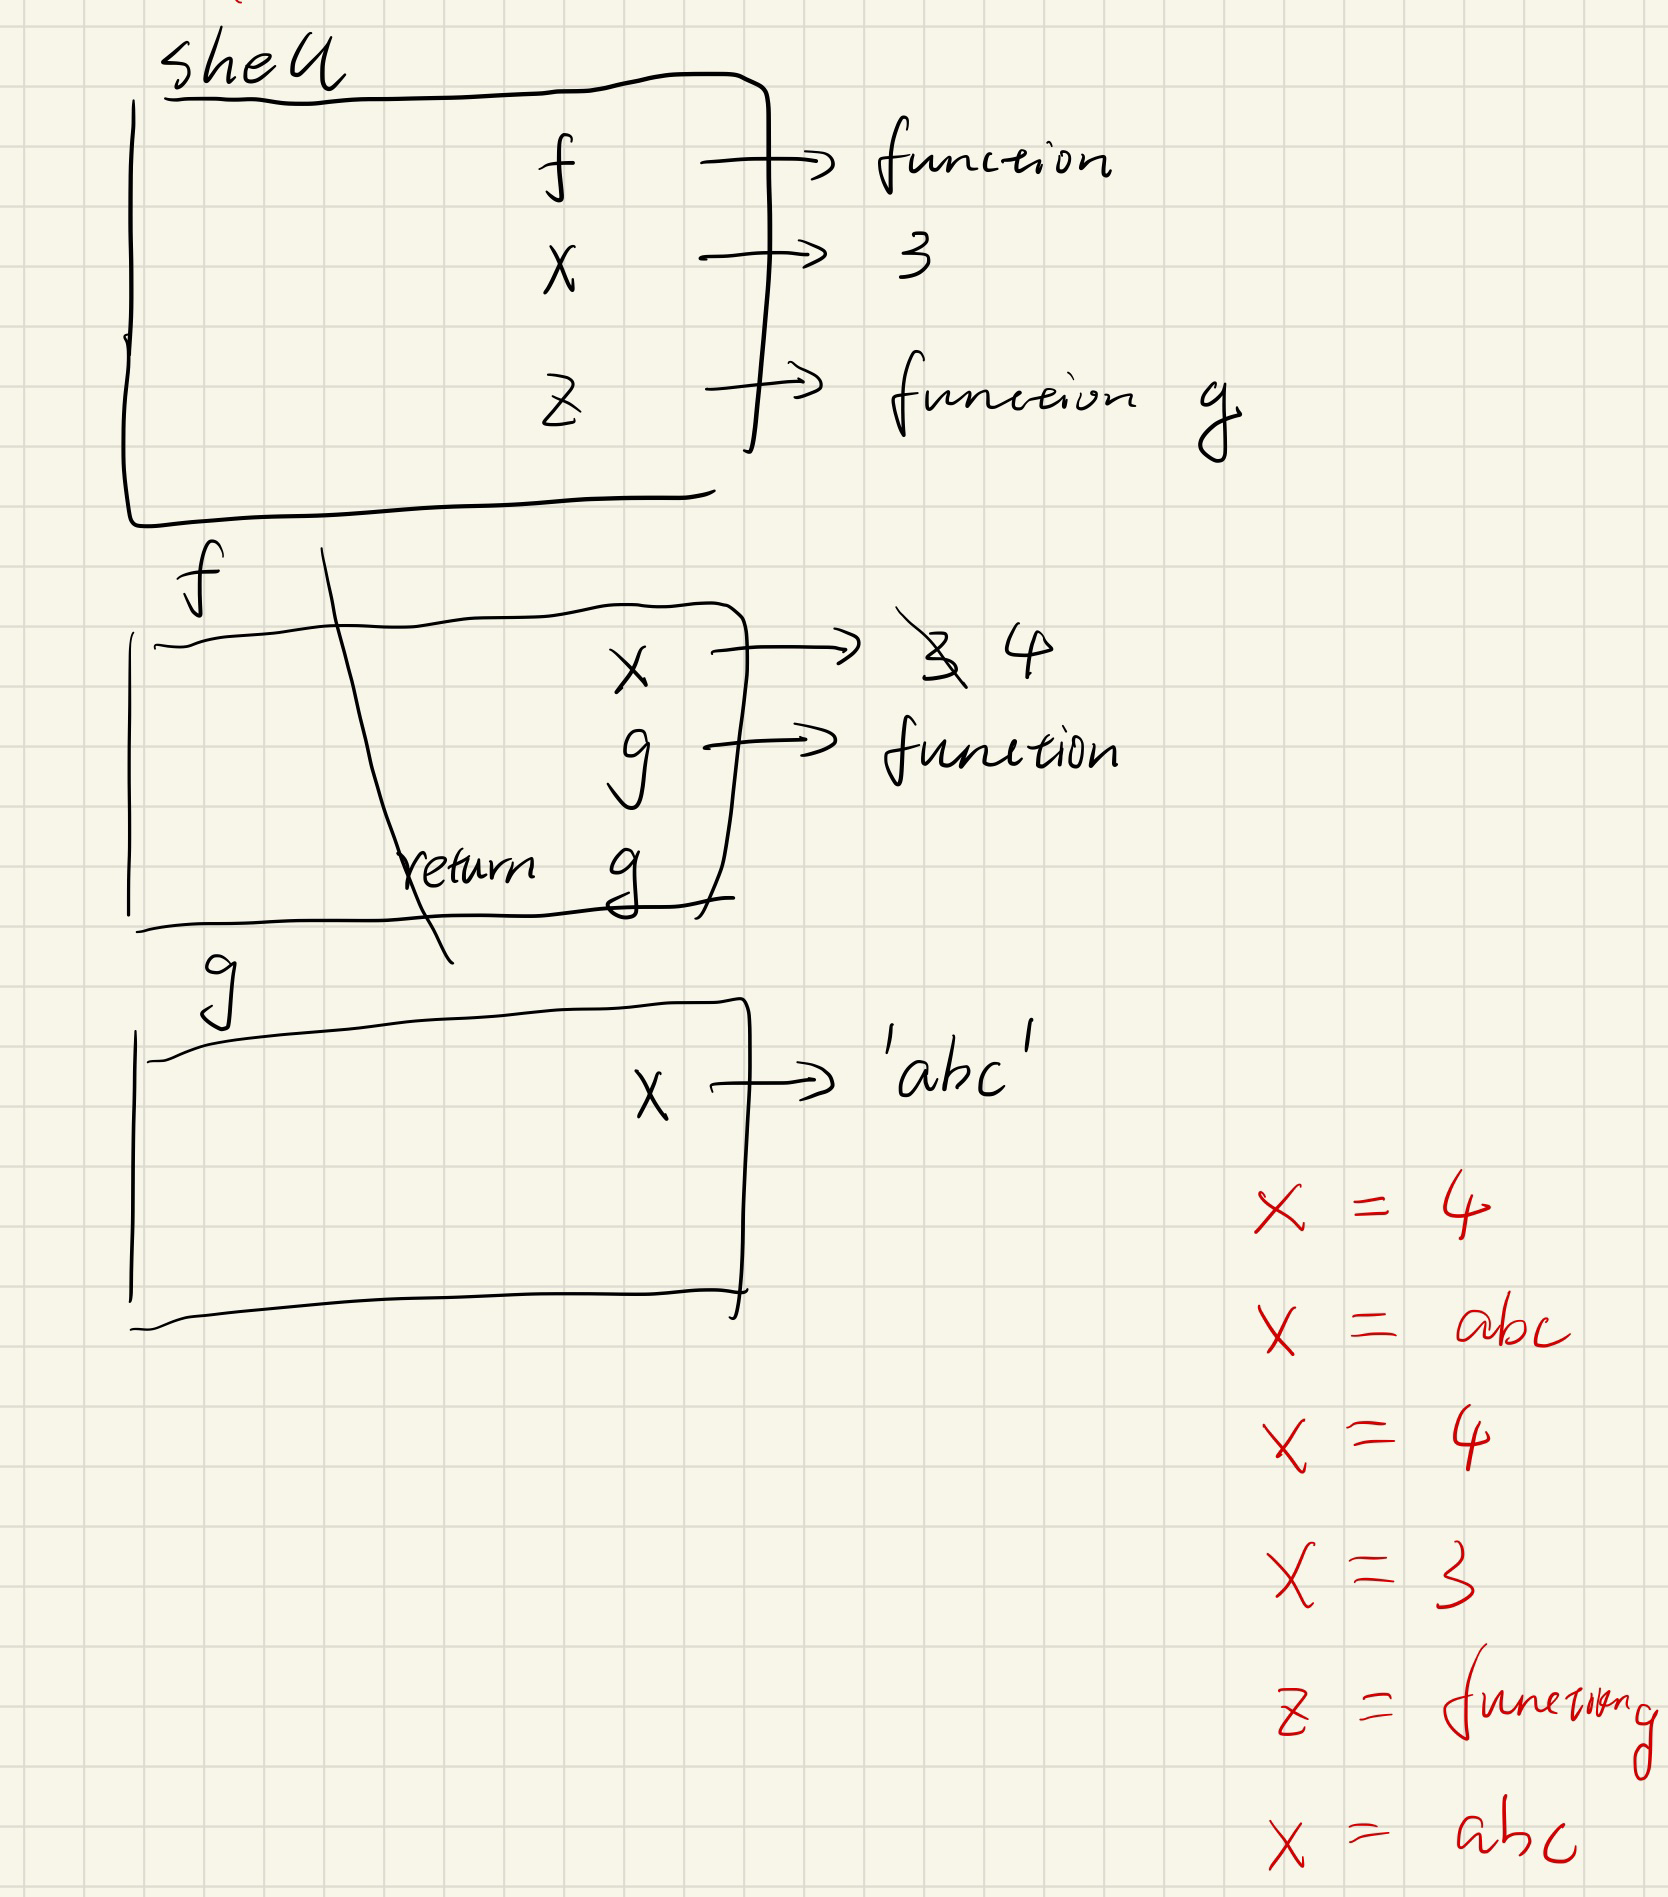 shell
f → function
x → 3
z → function g
f
x → 3 4
g → function
return g
g
x → 'abc'
x = 4
x = abc
x = 4
x = 3
z = function g
x = abc